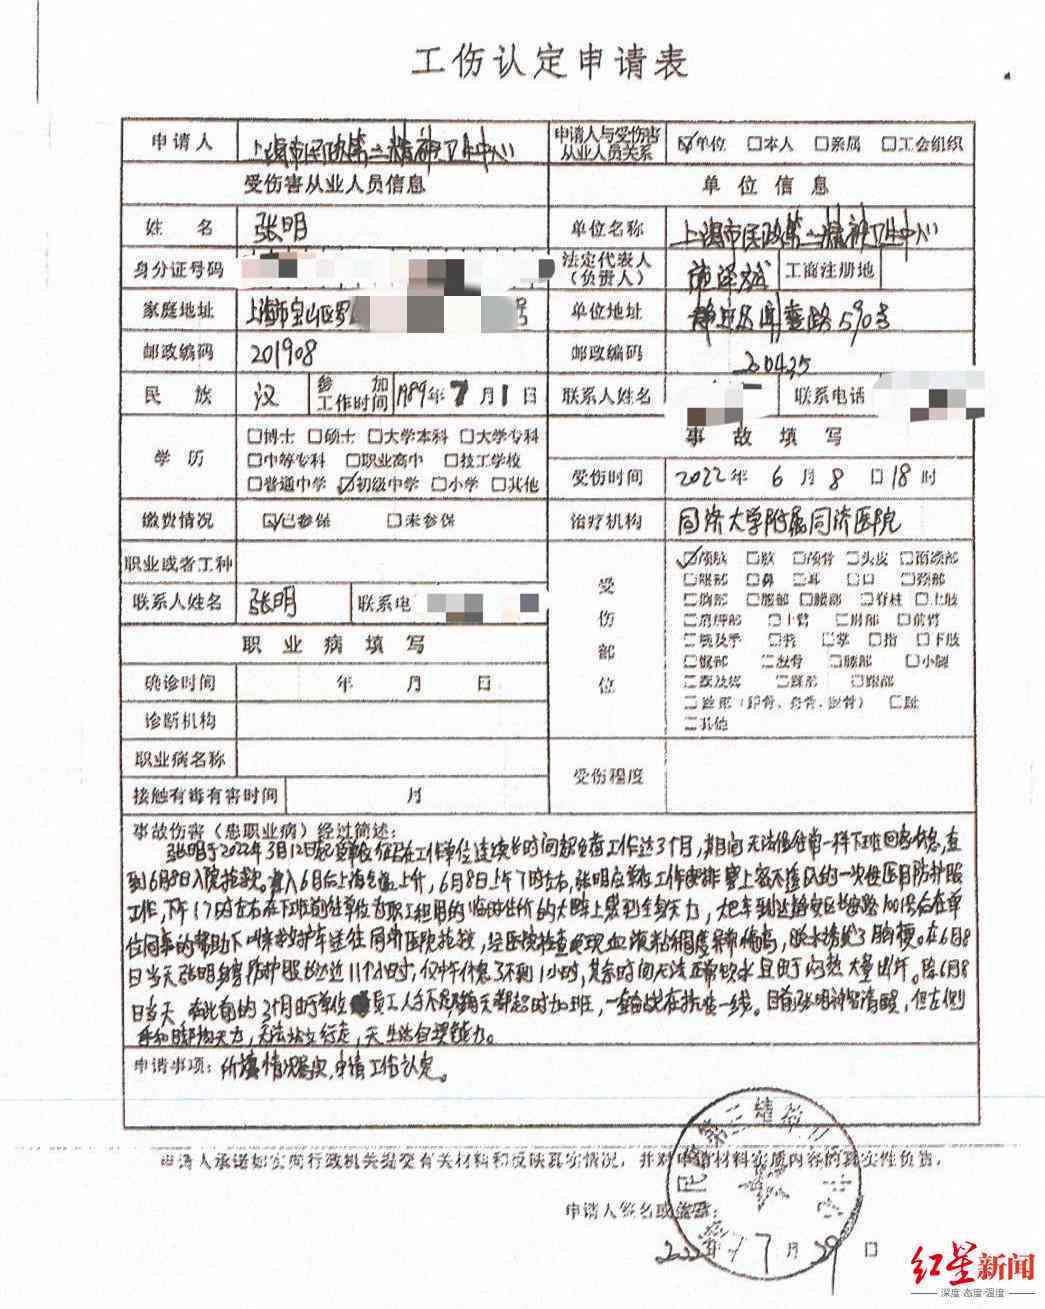 工伤认定申请表
申请人 上海市民政第三精神卫生中心 申请人与受伤害从业人员关系 ☑单位 □本人 □亲属 □工会组织
受伤害从业人员信息 单位信息
姓名 张明 单位名称 上海市民政第三精神卫生中心
身分证号码 法定代表人(负责人) 工商注册地
家庭地址 上海市宝山区罗 号 单位地址 静安区闻喜路590号
邮政编码 201908 邮政编码 200435
民族 汉 参加工作时间 1989年7月1日 联系人姓名 联系电话
事故填写
学历 □博士 □硕士 □大学本科 □大学专科
□中等专科 □职业高中 □技工学校
□普通中学 ☑初级中学 □小学 □其他
受伤时间 2022年6月8日18时
缴费情况 ☑已参保 □未参保 治疗机构 同济大学附属同济医院
职业或者工种
联系人姓名 张明 联系电
职业病填写
确诊时间 年 月 日
诊断机构
职业病名称
接触有毒有害时间 月
受伤部位 ☑颅脑 □颅骨 □头皮 □面颌部
□眼部 □鼻 □耳 □口 □颈部
□胸部 □腹部 □腰部 □脊柱 □上肢
□肩胛部 □上臂 □肘部 □前臂
□腕及手 □掌 □指 □下肢
□髋部 □股骨 □小腿
□其他
受伤程度
事故伤害（患职业病）经过简述：
张明于2022年3月12日起 在工作单位连续长时间超负荷工作达3个月，期间无法像往常一样下班回家休息，直
到6月8日入院抢救。进入6月后上海气温上升，6月8日上午7时左右，张明应单位工作安排穿上密不透风的一次性医用防护服
工作，下午17时左右在下班前往单位为职工租用的临时住所的大巴车上感到全身无力，大巴车到达静安区 路1001号后在单
位同事的帮助下叫来救护车送往同济医院抢救，经医院检查发现血液粘稠度异常偏高，脱水诱发了脑梗。在6月8
日当天张明身穿防护服长达近11个小时，仅中午休息了不到1小时，其余时间无法正常饮水且由于闷热大量出汗。除6月8
日当天，在此前的3个月由于单位 员工人手不足每天都超时加班，一直奋战在抗疫一线。目前张明神智清醒，但左侧
手和脚均无力，无法站立行走，无生活自理能力。
申请事项：所填情况属实，申请工伤认定。
申请人承诺如实向行政机关提交有关材料和反映真实情况，并对申请材料实质内容的真实性负责。
申请人签名或盖章：
2022年7月29日
红星新闻
深度 态度 温度